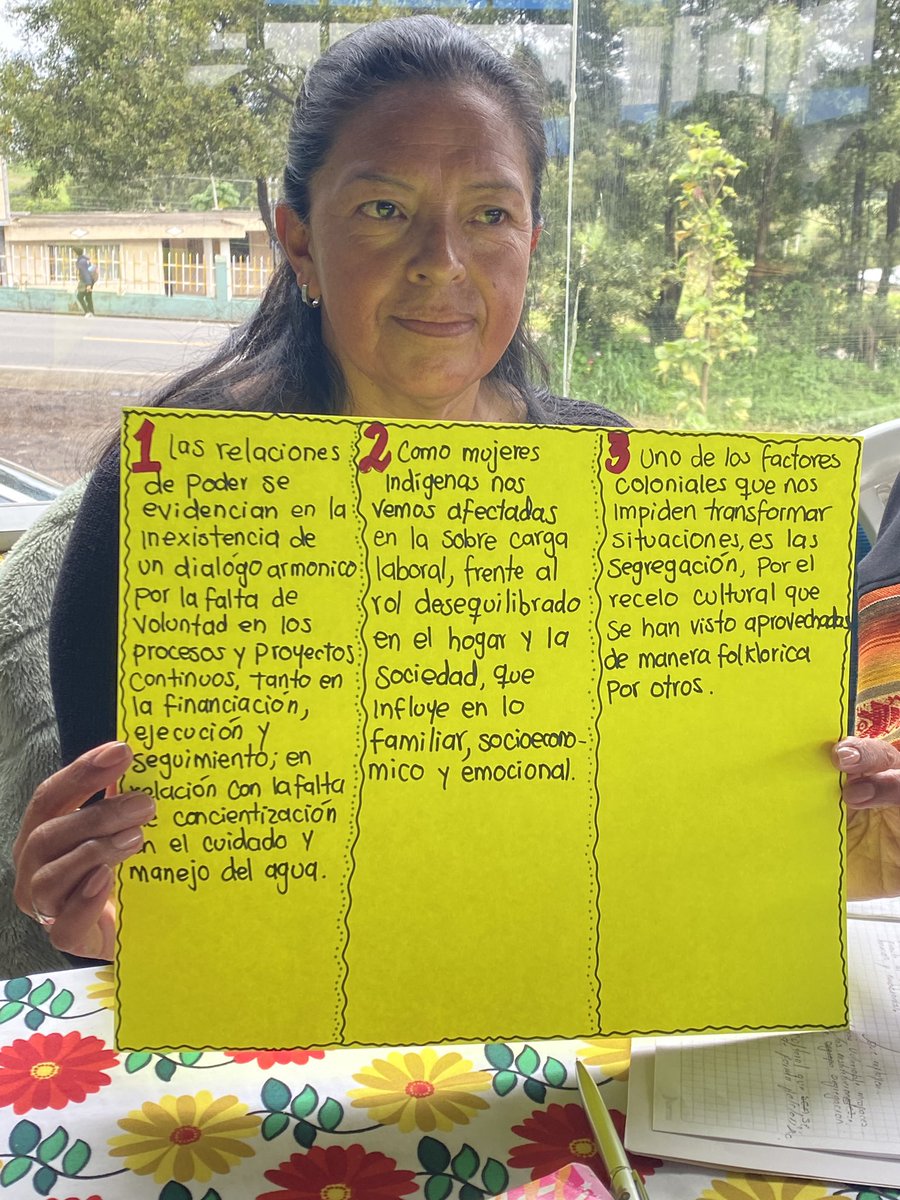 1 Las relaciones
de Poder se
evidencian en la
inexistencia de
un dialógo armonico
por la falta de
voluntad en los
procesos y Proyectos
continuos, tanto en
la financiación,
ejecución y
seguimiento; en
relación con la falta
concientización
el cuidado y
manejo del agua.
2 Como mujeres
Indigenas nos
vemos afectadas
en la sobre carga
laboral, frente al
rol desequilibrado
en el hogar y la
Sociedad, que
influye en lo
familiar, socioecono-
mico y emocional.
3 Uno de los factores
coloniales que nos
impiden transformar
situaciones, es las
Segregación, Por el
recelo cultural que
se han visto aprovechadas
de manera folklorica
Por otros.